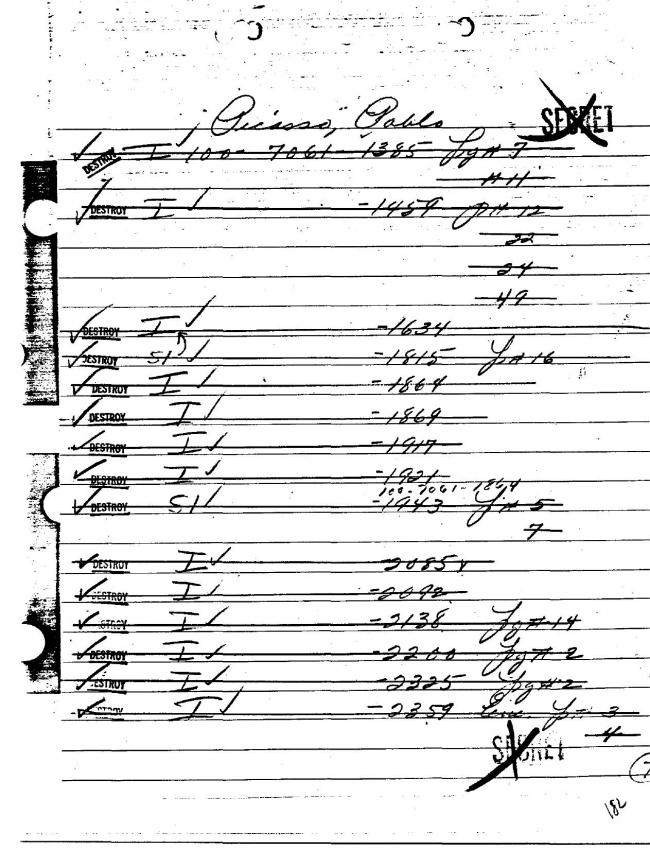 "Picasso, Pablo
SECRET
✓ DESTROY I 100-7061-1385 pg# 7
#11
✓ DESTROY I ✓ -1459 p# 12
22
24
49
✓ DESTROY I ✓ -1634
✓ DESTROY SI ✓ -1815 p# 16
✓ DESTROY I ✓ -1864
✓ DESTROY I ✓ -1869
✓ DESTROY I ✓ -1917
✓ DESTROY I ✓ -1921
100-7061-1864
✓ DESTROY SI ✓ -1943 p# 5
7
✓ DESTROY I ✓ -2085
✓ DESTROY I ✓ -2092
✓ DESTROY I ✓ -2138 pg# 14
✓ DESTROY I ✓ -2200 pg# 2
✓ DESTROY I ✓ -2325 pg# 2
✓ DESTROY I ✓ -2359 Enc. p# 3
4
SECRET
7
182